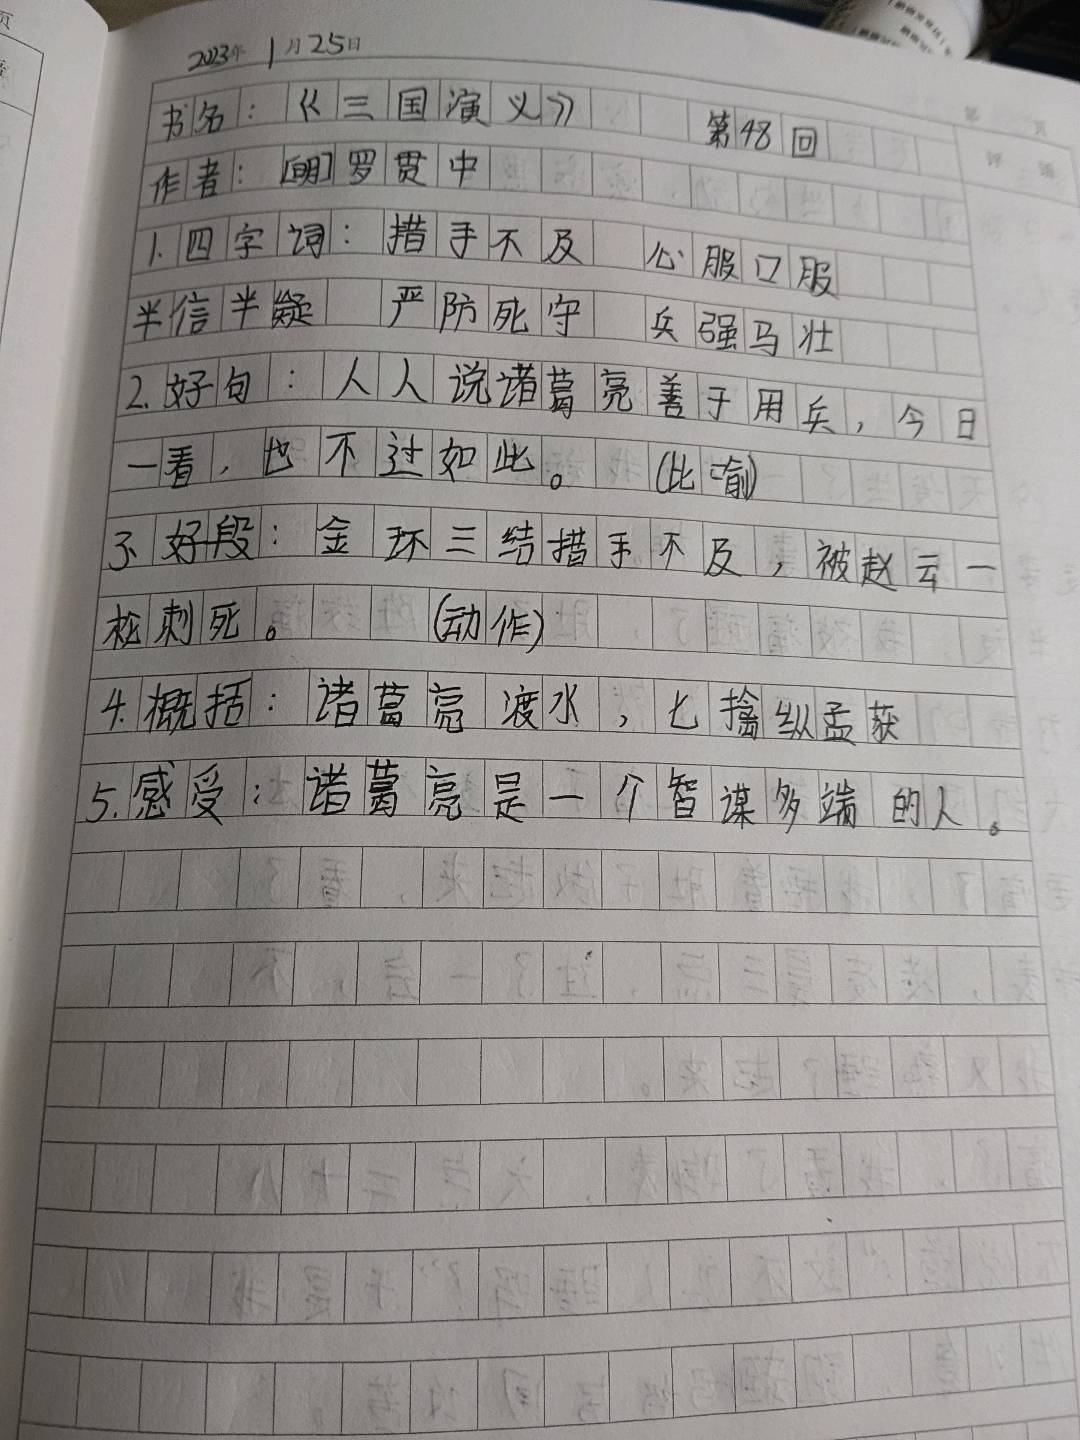 2023年 1月25日
书名：《三国演义》 第48回
作者：[明]罗贯中
1.四字词：措手不及 心服口服
半信半疑 严防死守 兵强马壮
2.好句：人人说诸葛亮善于用兵，今日
一看，也不过如此。 (比喻)
3.好段：金环三结措手不及，被赵云一
枪刺死。 (动作)
4.概括：诸葛亮渡水，七擒纵孟获
5.感受：诸葛亮是一个智谋多端的人。